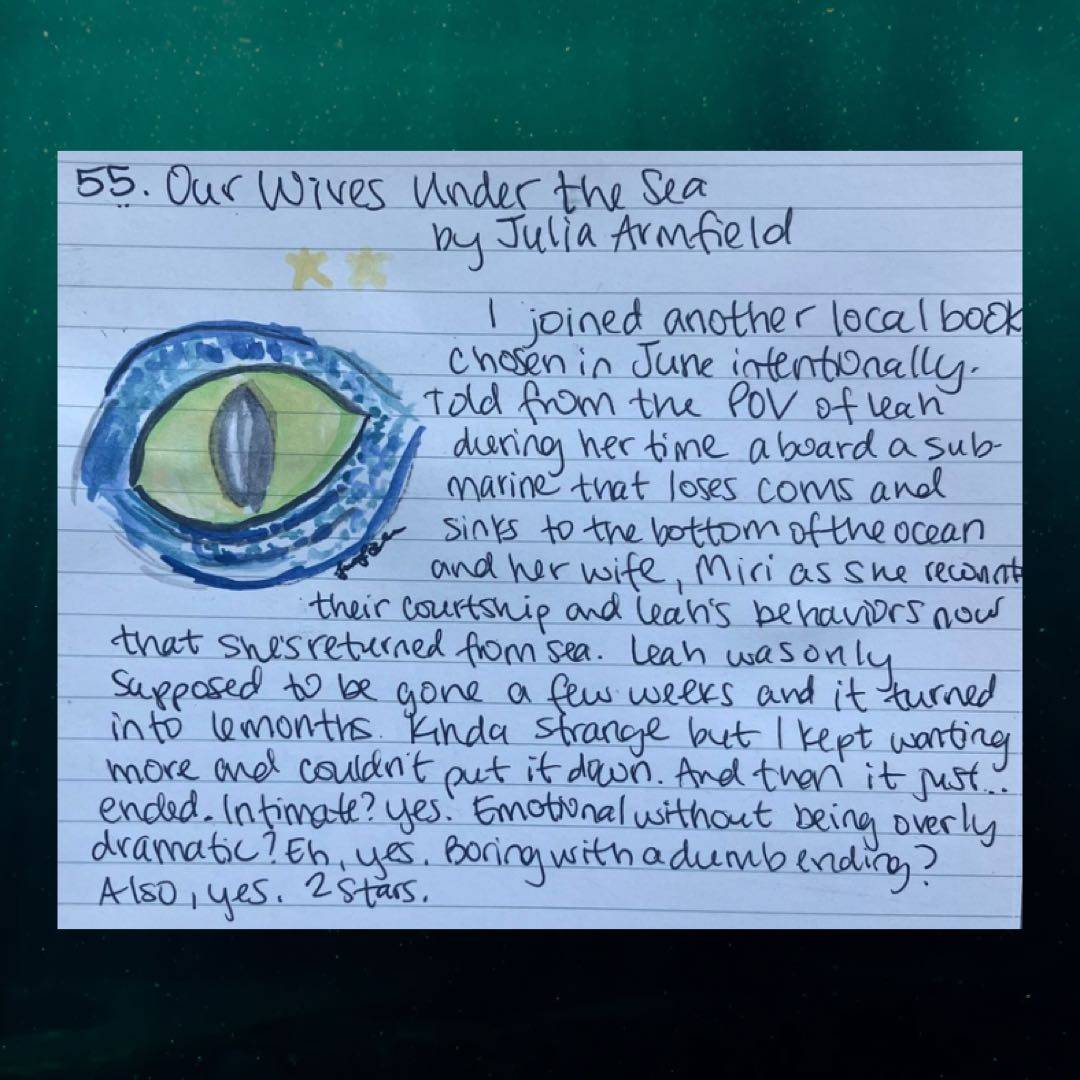 55. Our Wives Under the Sea
by Julia Armfield
I joined another local book
chosen in June intentionally.
Told from the POV of Leah
during her time aboard a sub-
marine that loses coms and
sinks to the bottom of the ocean
and her wife, Miri as she recount
their courtship and Leah's behaviors now
that she's returned from sea. Leah was only
supposed to be gone a few weeks and it turned
into 6 months. Kinda strange but I kept wanting
more and couldn't put it down. And then it just...
ended. Intimate? yes. Emotional without being overly
dramatic? Eh, yes. Boring with a dumb ending?
Also, yes. 2 Stars.